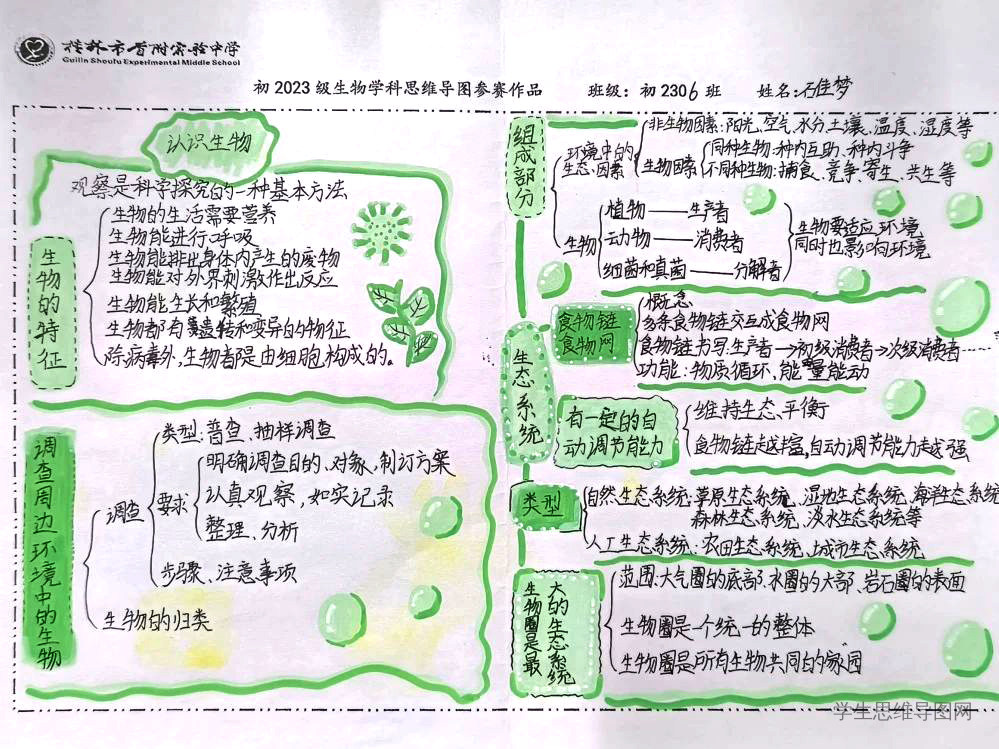 桂林市首附实验中学
Guilin Shoufu Experimental Middle School
初2023级生物学科思维导图参赛作品 班级：初2306班 姓名：石佳梦
认识生物
观察是科学探究的一种基本方法
生物的特征
生物的生活需要营养
生物能进行呼吸
生物能排出身体内产生的废物
生物能对外界刺激作出反应
生物能生长和繁殖
生物都有遗传和变异的物征
除病毒外,生物者是由细胞构成的。
调查周边环境中的生物
调查
类型:普查、抽样调查
要求
明确调查目的、对象,制订方案
认真观察，如实记录
整理、分析
步骤、注意事项
生物的归类
生态系统
组成部分
环境中的
生态因素
非生物因素:阳光、空气、水分、土壤、温度、湿度等
生物因素
同种生物:种内互助、种内斗争
不同种生物:捕食、竞争、寄生、共生等
生物
植物——生产者
动物——消费者
细菌和真菌——分解者
生物要适应环境,
同时也影响环境
食物链
食物网
概念
多条食物链交互成食物网
食物链书写:生产者→初级消费者→次级消费者……
功能:物质循环、能量能动
有一定的自
动调节能力
维持生态平衡
食物链越丰富,自动调节能力越强
类型
自然生态系统:草原生态系统、湿地生态系统、海洋生态系统
森林生态系统、淡水生态系统等
人工生态系统:农田生态系统、城市生态系统
生物圈是最
大的生态系统
范围:大气圈的底部、水圈的大部、岩石圈的表面
生物圈是一个统一的整体
生物圈是所有生物共同的家园
学生思维导图网